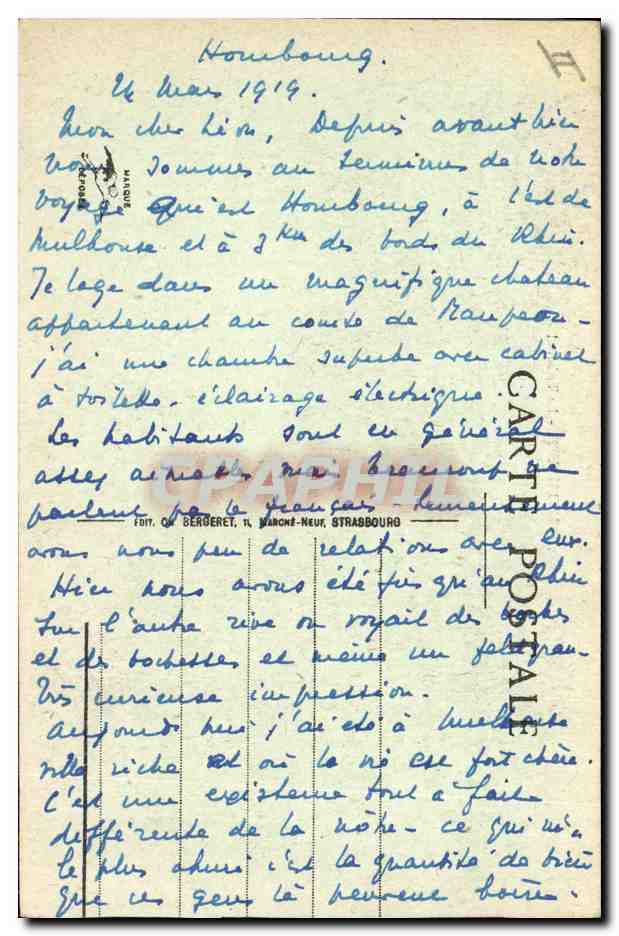 Hombourg.
II
24 Mars 1919.
Mon cher Léon, Depuis avant hier
nous sommes au terminus de notre
voyage qu'est Hombourg, à l'est de
Mulhouse et à 3 Km des bords du Rhin.
Je loge dans un magnifique chateau
appartenant au comte de Maupeou -
j'ai une chambre superbe avec cabinet
à toilette - éclairage électrique.
Les habitants sont en général
assez aimables mais beaucoup ne
parlent pas le français -
avons nous peu de relations avec eux.
Hier nous avons été jusqu'au Rhin
Sur l'autre rive on voyait des boches
et des bochesses et même un feldgrau -
Très curieuse impression.
Aujourd'hui j'ai été à Mulhouse
ville riche et où la vie est fort chère.
C'est une existence tout à fait
différente de la nôtre - ce qui m'a
le plus ahuri c'est la quantité de bière
que ces gens là peuvent boire -
MARQUE
DÉPOSÉE
CARTE POSTALE
EDIT. CH. BERGERET, 11, MARCHÉ-NEUF, STRASBOURG
CPAPHIL